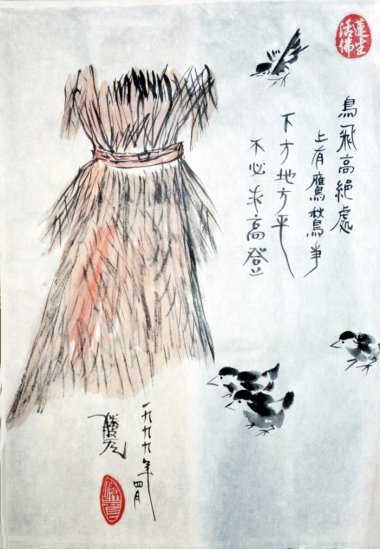 蓮生
活佛
鳥飛高絕處
上有鷹鷲爭
下方地方平
不必求高登
一九九九年四月